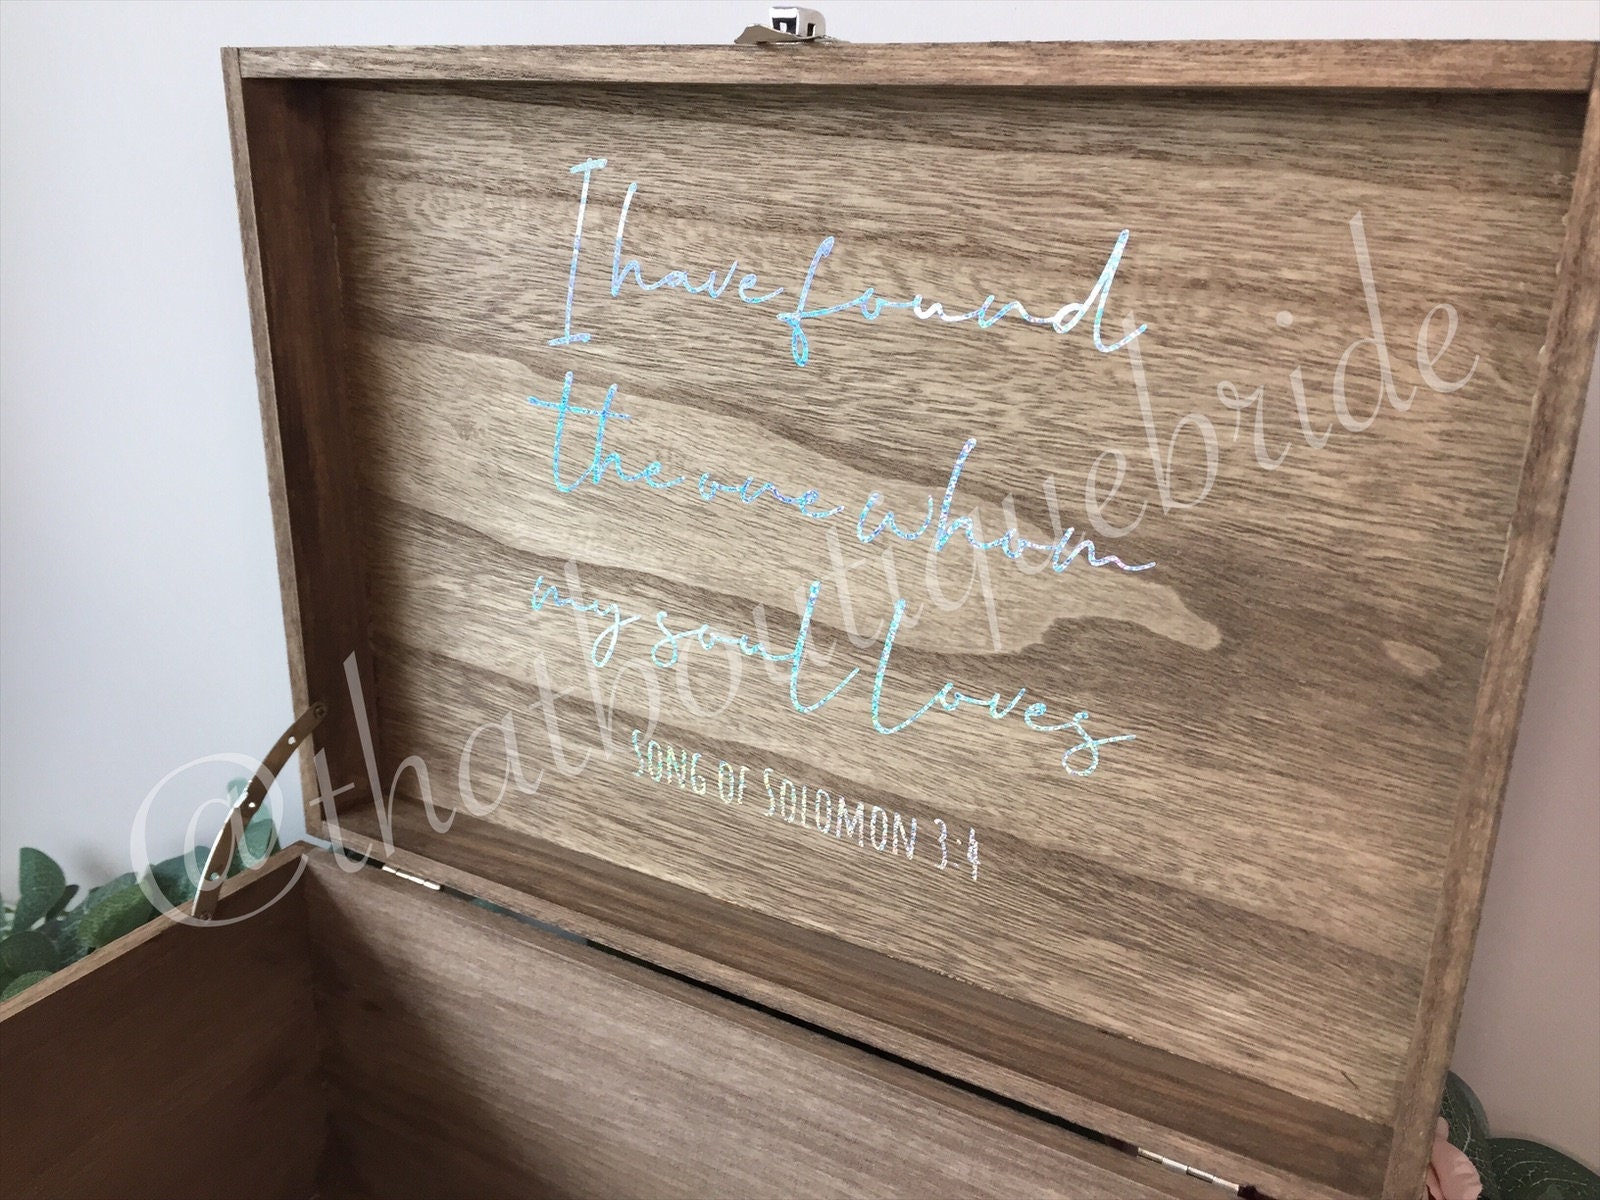 I have found
the one whom
my soul loves
SONG OF SOLOMON 3:4
@thatboutiquebride